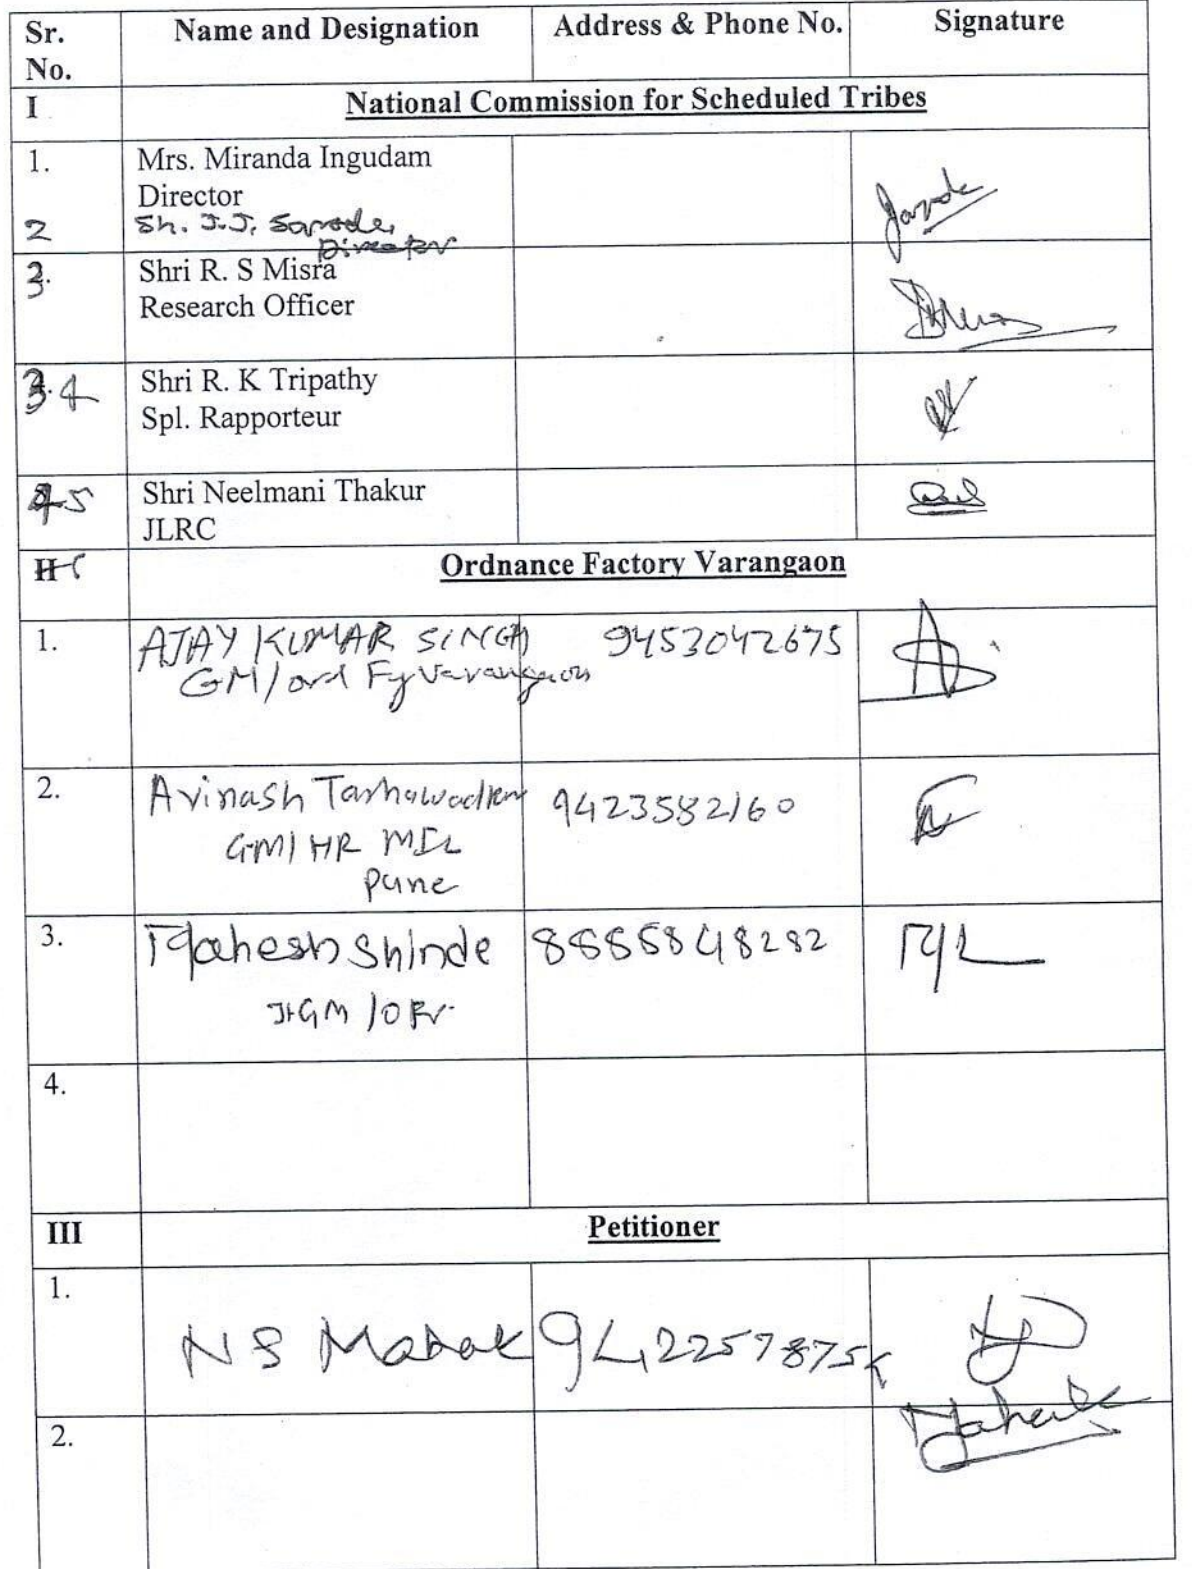 Sr. No. Name and Designation Address & Phone No. Signature
I National Commission for Scheduled Tribes
1. Mrs. Miranda Ingudam
Director
2 Sh. J.J. Sarode,
Director
3. Shri R. S Misra
Research Officer
4 Shri R. K Tripathy
Spl. Rapporteur
5 Shri Neelmani Thakur
JLRC
II Ordnance Factory Varangaon
1. AJAY KUMAR SINGH 9453042675
GM/ord Fy Varangaon
2. Avinash 9423582160
GM/HR MIL
Pune
3. Mahesh Shinde
Jt.GM/OFV
4.
III Petitioner
1. N S
2.